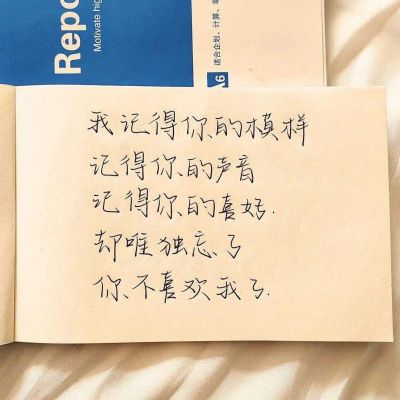 Repo
Motivate hig
适合企划、计算、
A6
我记得你的模样
记得你的声音
记得你的喜好.
却唯独忘了
你不喜欢我了.